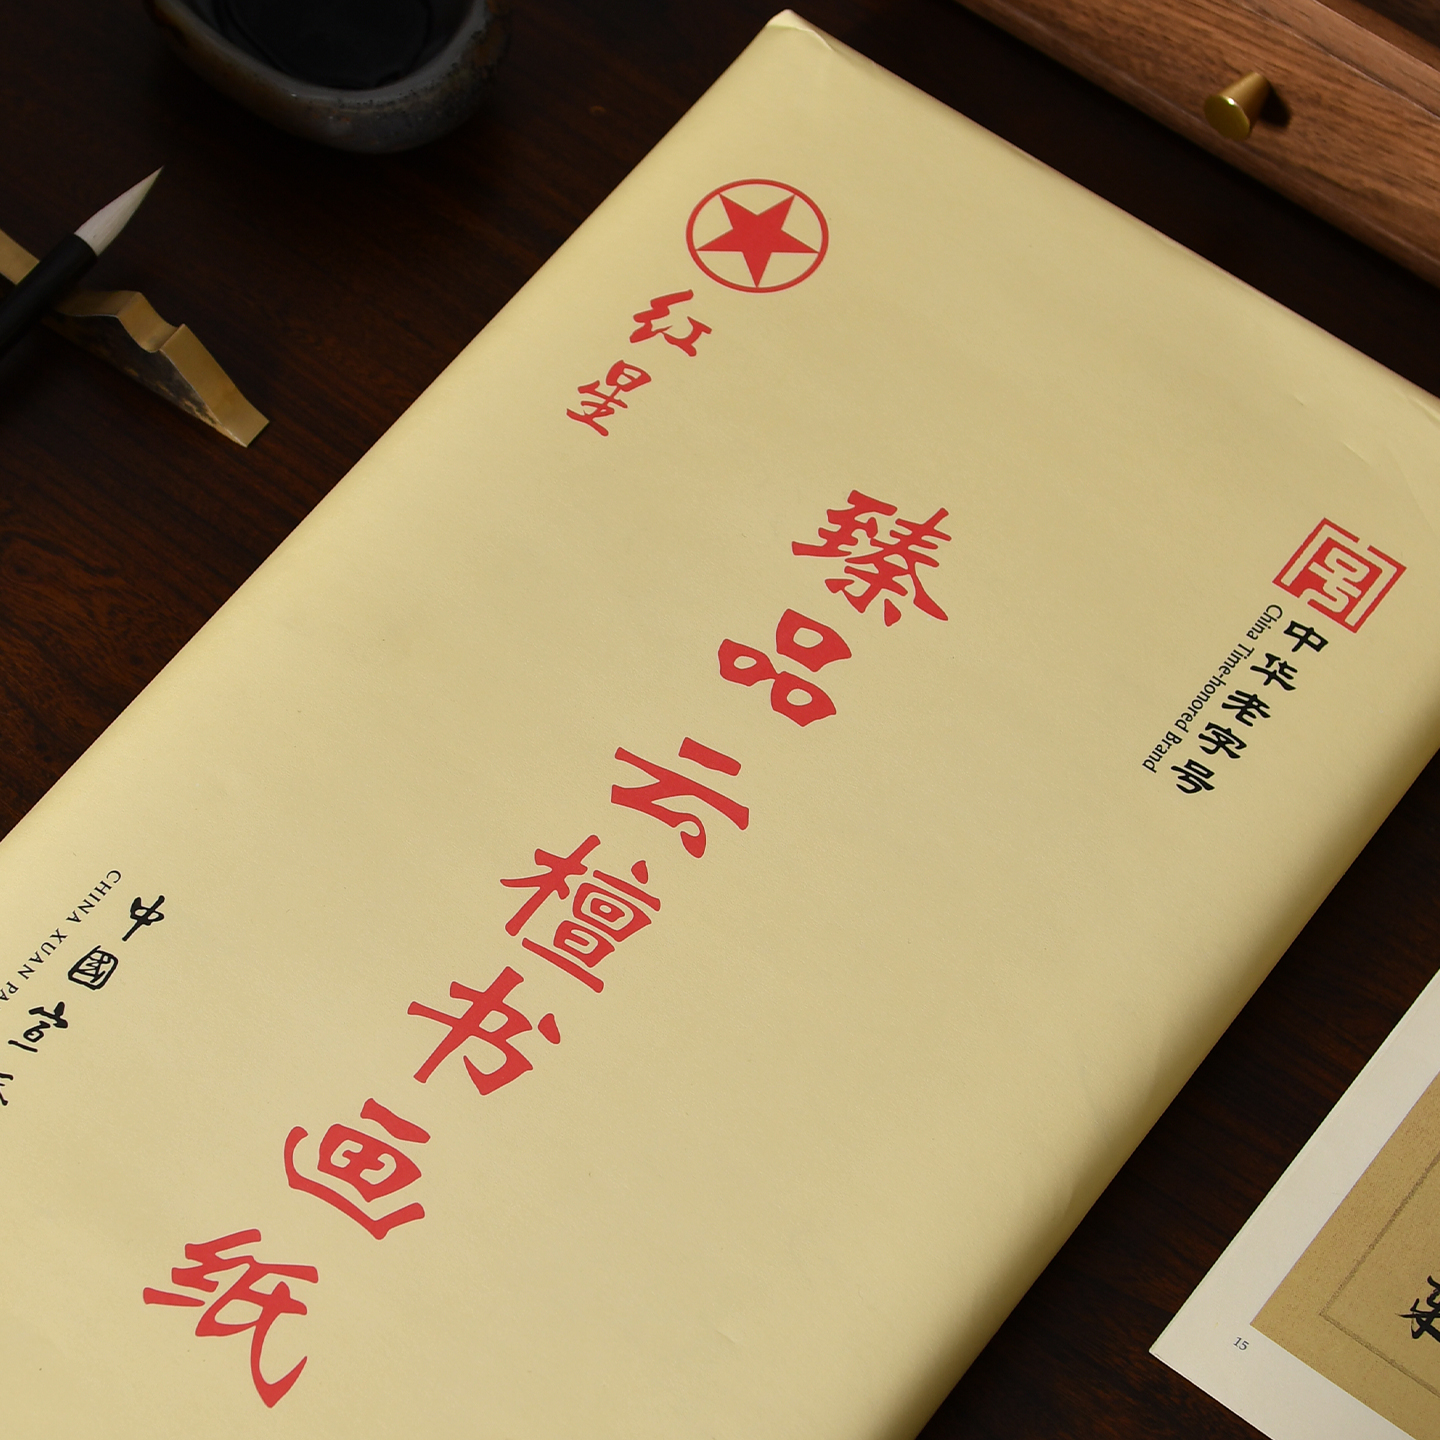 红星
臻品云檀书画纸
中华老字号
China Time-honored Brand
中國宣
CHINA XUAN PA
15